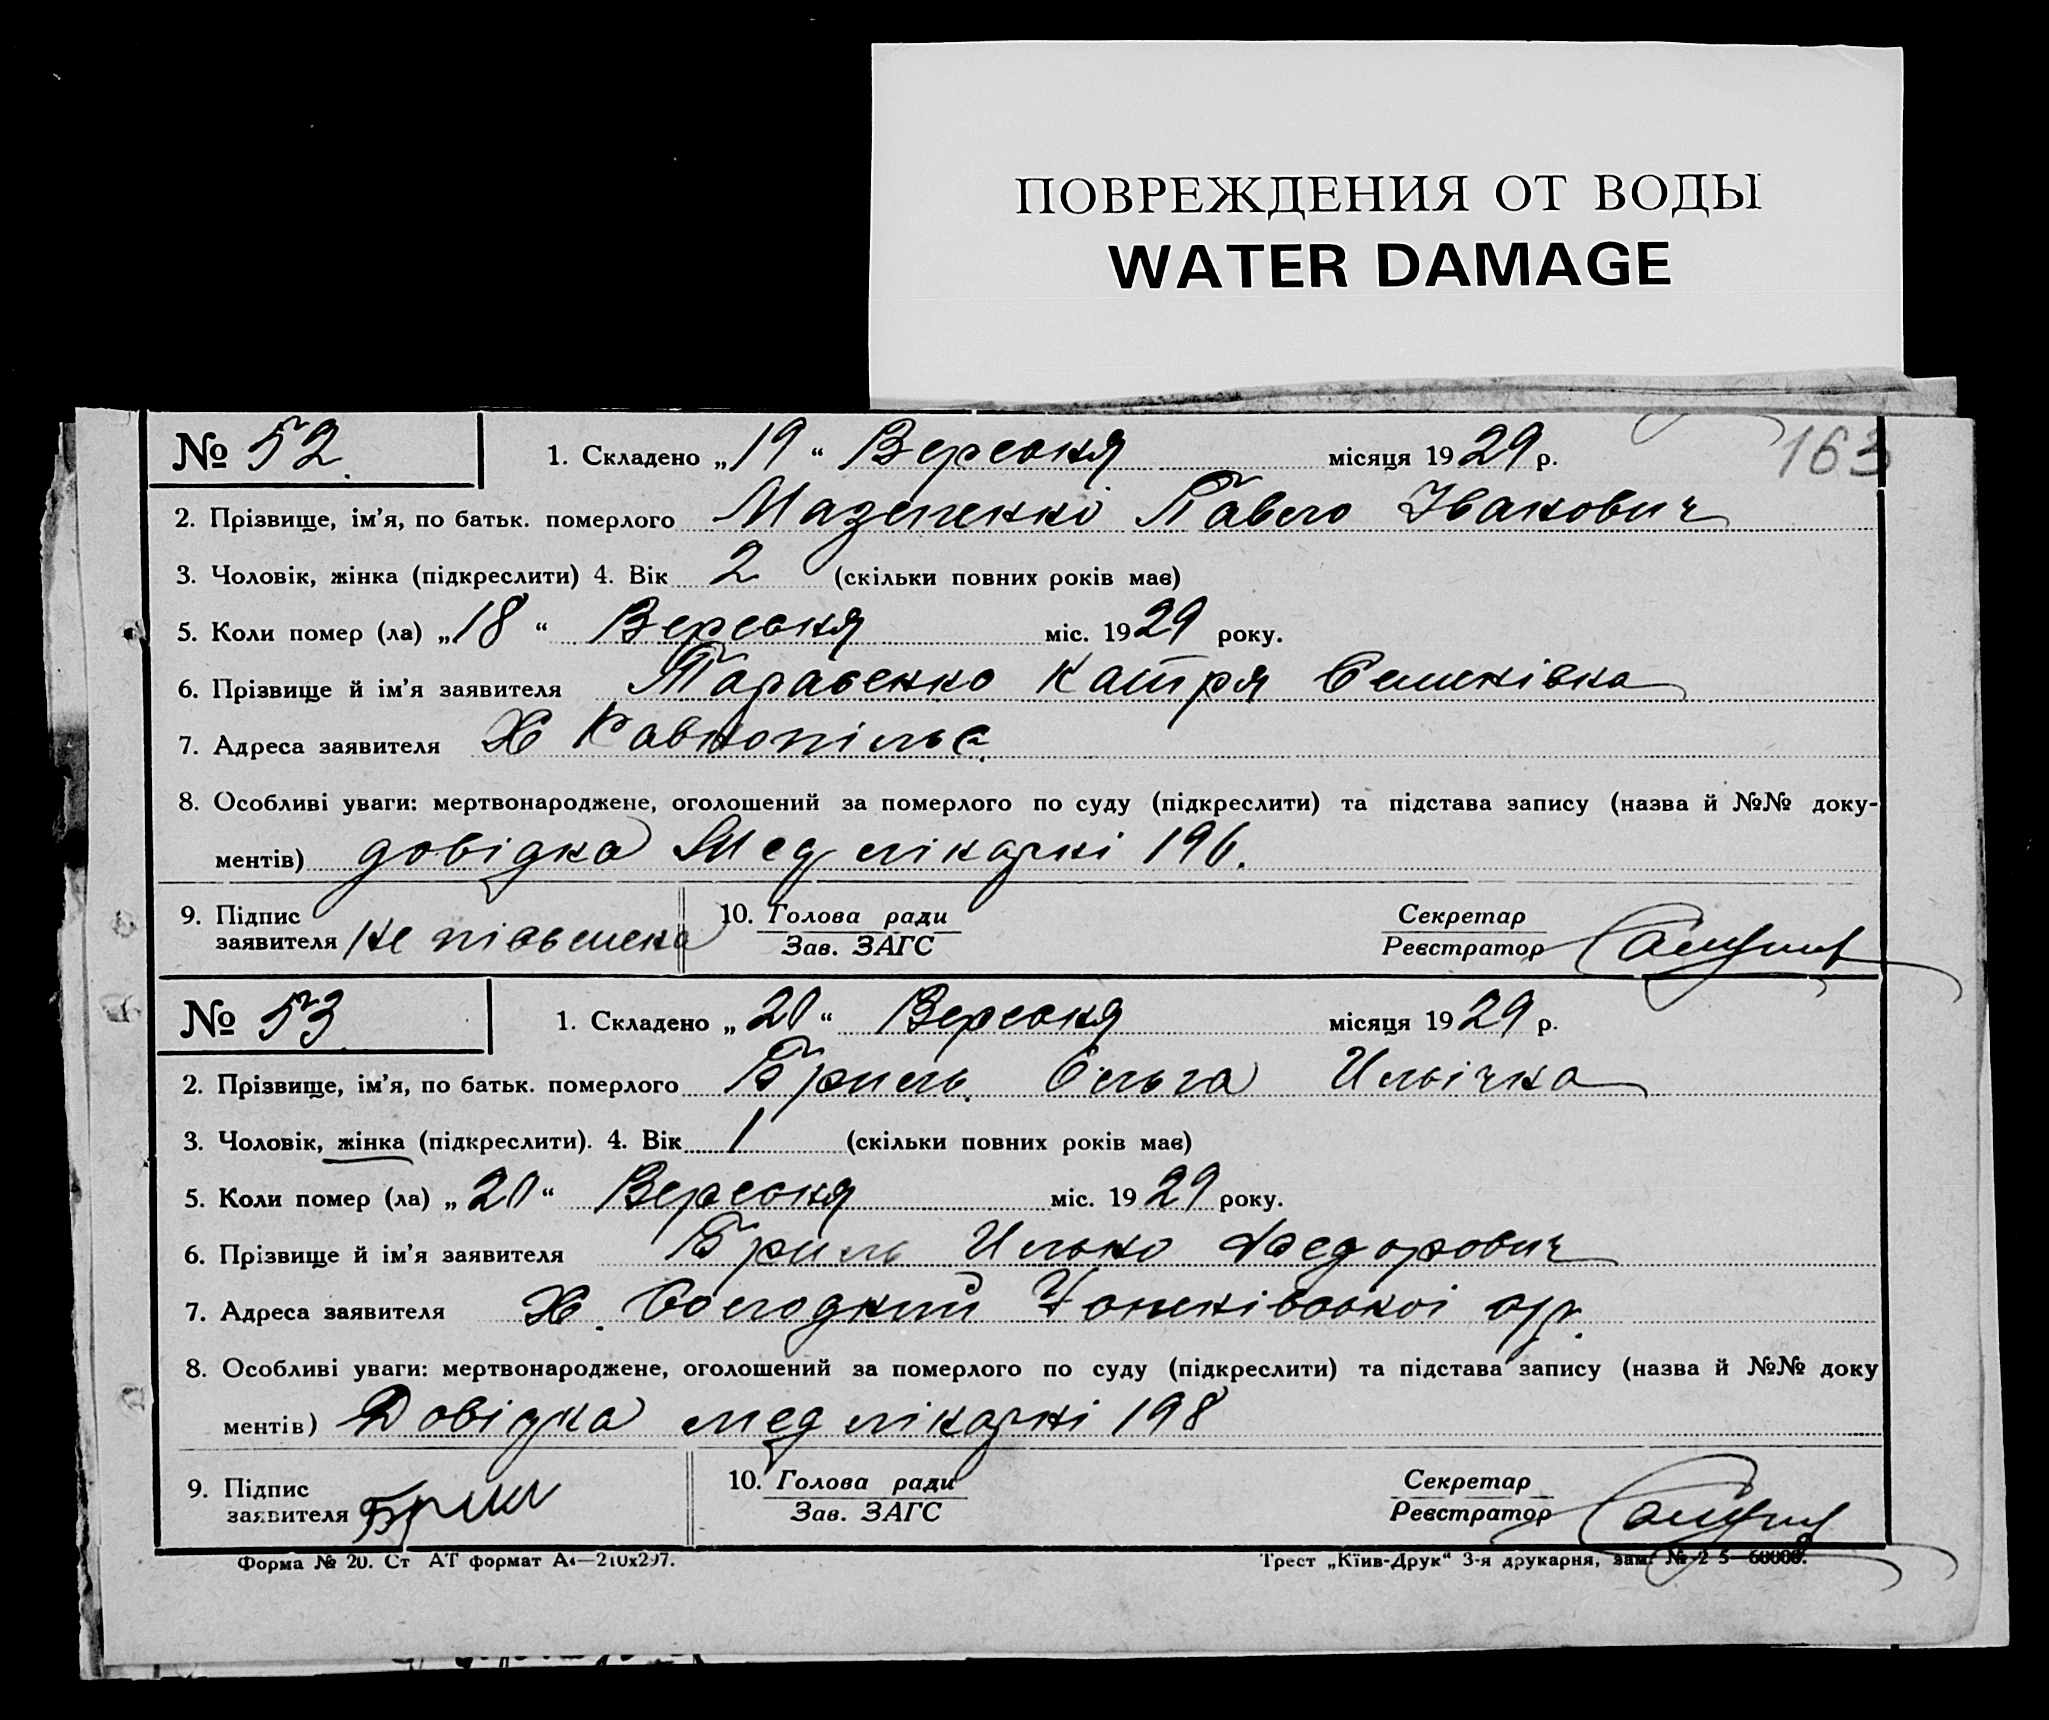 ПОВРЕЖДЕНИЯ ОТ ВОДЫ
WATER DAMAGE
163
№ 52. 1. Складено „19“ Вересня місяця 1929 р.
2. Прізвище, ім'я, по батьк. померлого Мазепенко Павло Іванович
3. Чоловік, жінка (підкреслити) 4. Вік 2 (скільки повних років має)
5. Коли помер (ла) „18“ Вересня міс. 1929 року.
6. Прізвище й ім'я заявителя Тарасенко Катря Семенівна
7. Адреса заявителя Х Равнопільє
8. Особливі уваги: мертвонароджене, оголошений за померлого по суду (підкреслити) та підстава запису (назва й №№ доку-
ментів) довідка Мед лікаркі 196.
9. Підпис заявителя не пісьмена 10. Голова ради Секретар
Зав. ЗАГС Реєстратор
№ 53. 1. Складено „20“ Вересня місяця 1929 р.
2. Прізвище, ім'я, по батьк. померлого Бриль Ольга Ильічна
3. Чоловік, жінка (підкреслити). 4. Вік 1 (скільки повних років має)
5. Коли помер (ла) „20“ Вересня міс. 1929 року.
6. Прізвище й ім'я заявителя Бриль Илько Федорович
7. Адреса заявителя Х. Солодкий
8. Особливі уваги: мертвонароджене, оголошений за померлого по суду (підкреслити) та підстава запису (назва й №№ доку
ментів) Довідка мед лікаркі 198
9. Підпис заявителя Брил 10. Голова ради Секретар
Зав. ЗАГС Реєстратор
Форма № 20. Ст АТ формат А4—210х297. Трест „Київ-Друк“ 3-я друкарня, зам. №